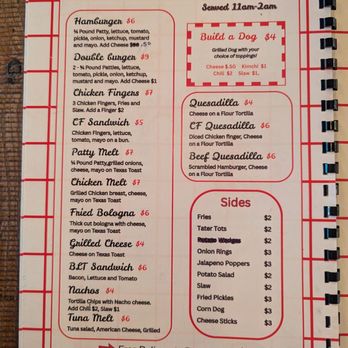 Served 11am-2am
Hamburger $6
¼ Pound Patty, lettuce, tomato,
pickle, onion, ketchup, mustard
and mayo. Add Cheese .50
Double burger $9
2 - ¼ Pound Patties, lettuce,
tomato, pickle, onion, ketchup,
mustard and mayo. Add Cheese $1
Chicken Fingers $7
3 Chicken Fingers, Fries and
Slaw. Add a Finger $2
CF Sandwich $5
Chicken Fingers, lettuce,
tomato, mayo on a bun.
Patty Melt $7
¼ Pound Patty, grilled onions,
cheese, mayo on Texas Toast
Chicken Melt $7
Grilled Chicken breast, cheese,
mayo on Texas Toast
Fried Bologna $6
Thick cut bologna with cheese,
mayo on Texas toast
Grilled Cheese $4
Cheese on Texas Toast
BLT Sandwich $6
Bacon, Lettuce and Tomato
Nachos $4
Tortilla Chips with Nacho cheese.
Add Chili $2, Slaw $1
Tuna Melt $6
Tuna salad, American Cheese, Grilled
Build a Dog $4
Grilled Dog with your
choice of toppings!
Cheese $.50 Kimchi $1
Chili $2 Slaw $1,
Quesadilla $4
Cheese on a Flour Tortilla
CF Quesadilla $6
Diced Chicken finger, Cheese
on a Flour Tortilla
Beef Quesadilla $6
Scrambled Hamburger, Cheese
on a Flour Tortilla
Sides
Fries $2
Tater Tots $2
Potato Wedges $2
Onion Rings $3
Jalapeno Poppers $3
Potato Salad $2
Slaw $2
Fried Pickles $3
Corn Dog $3
Cheese Sticks $3